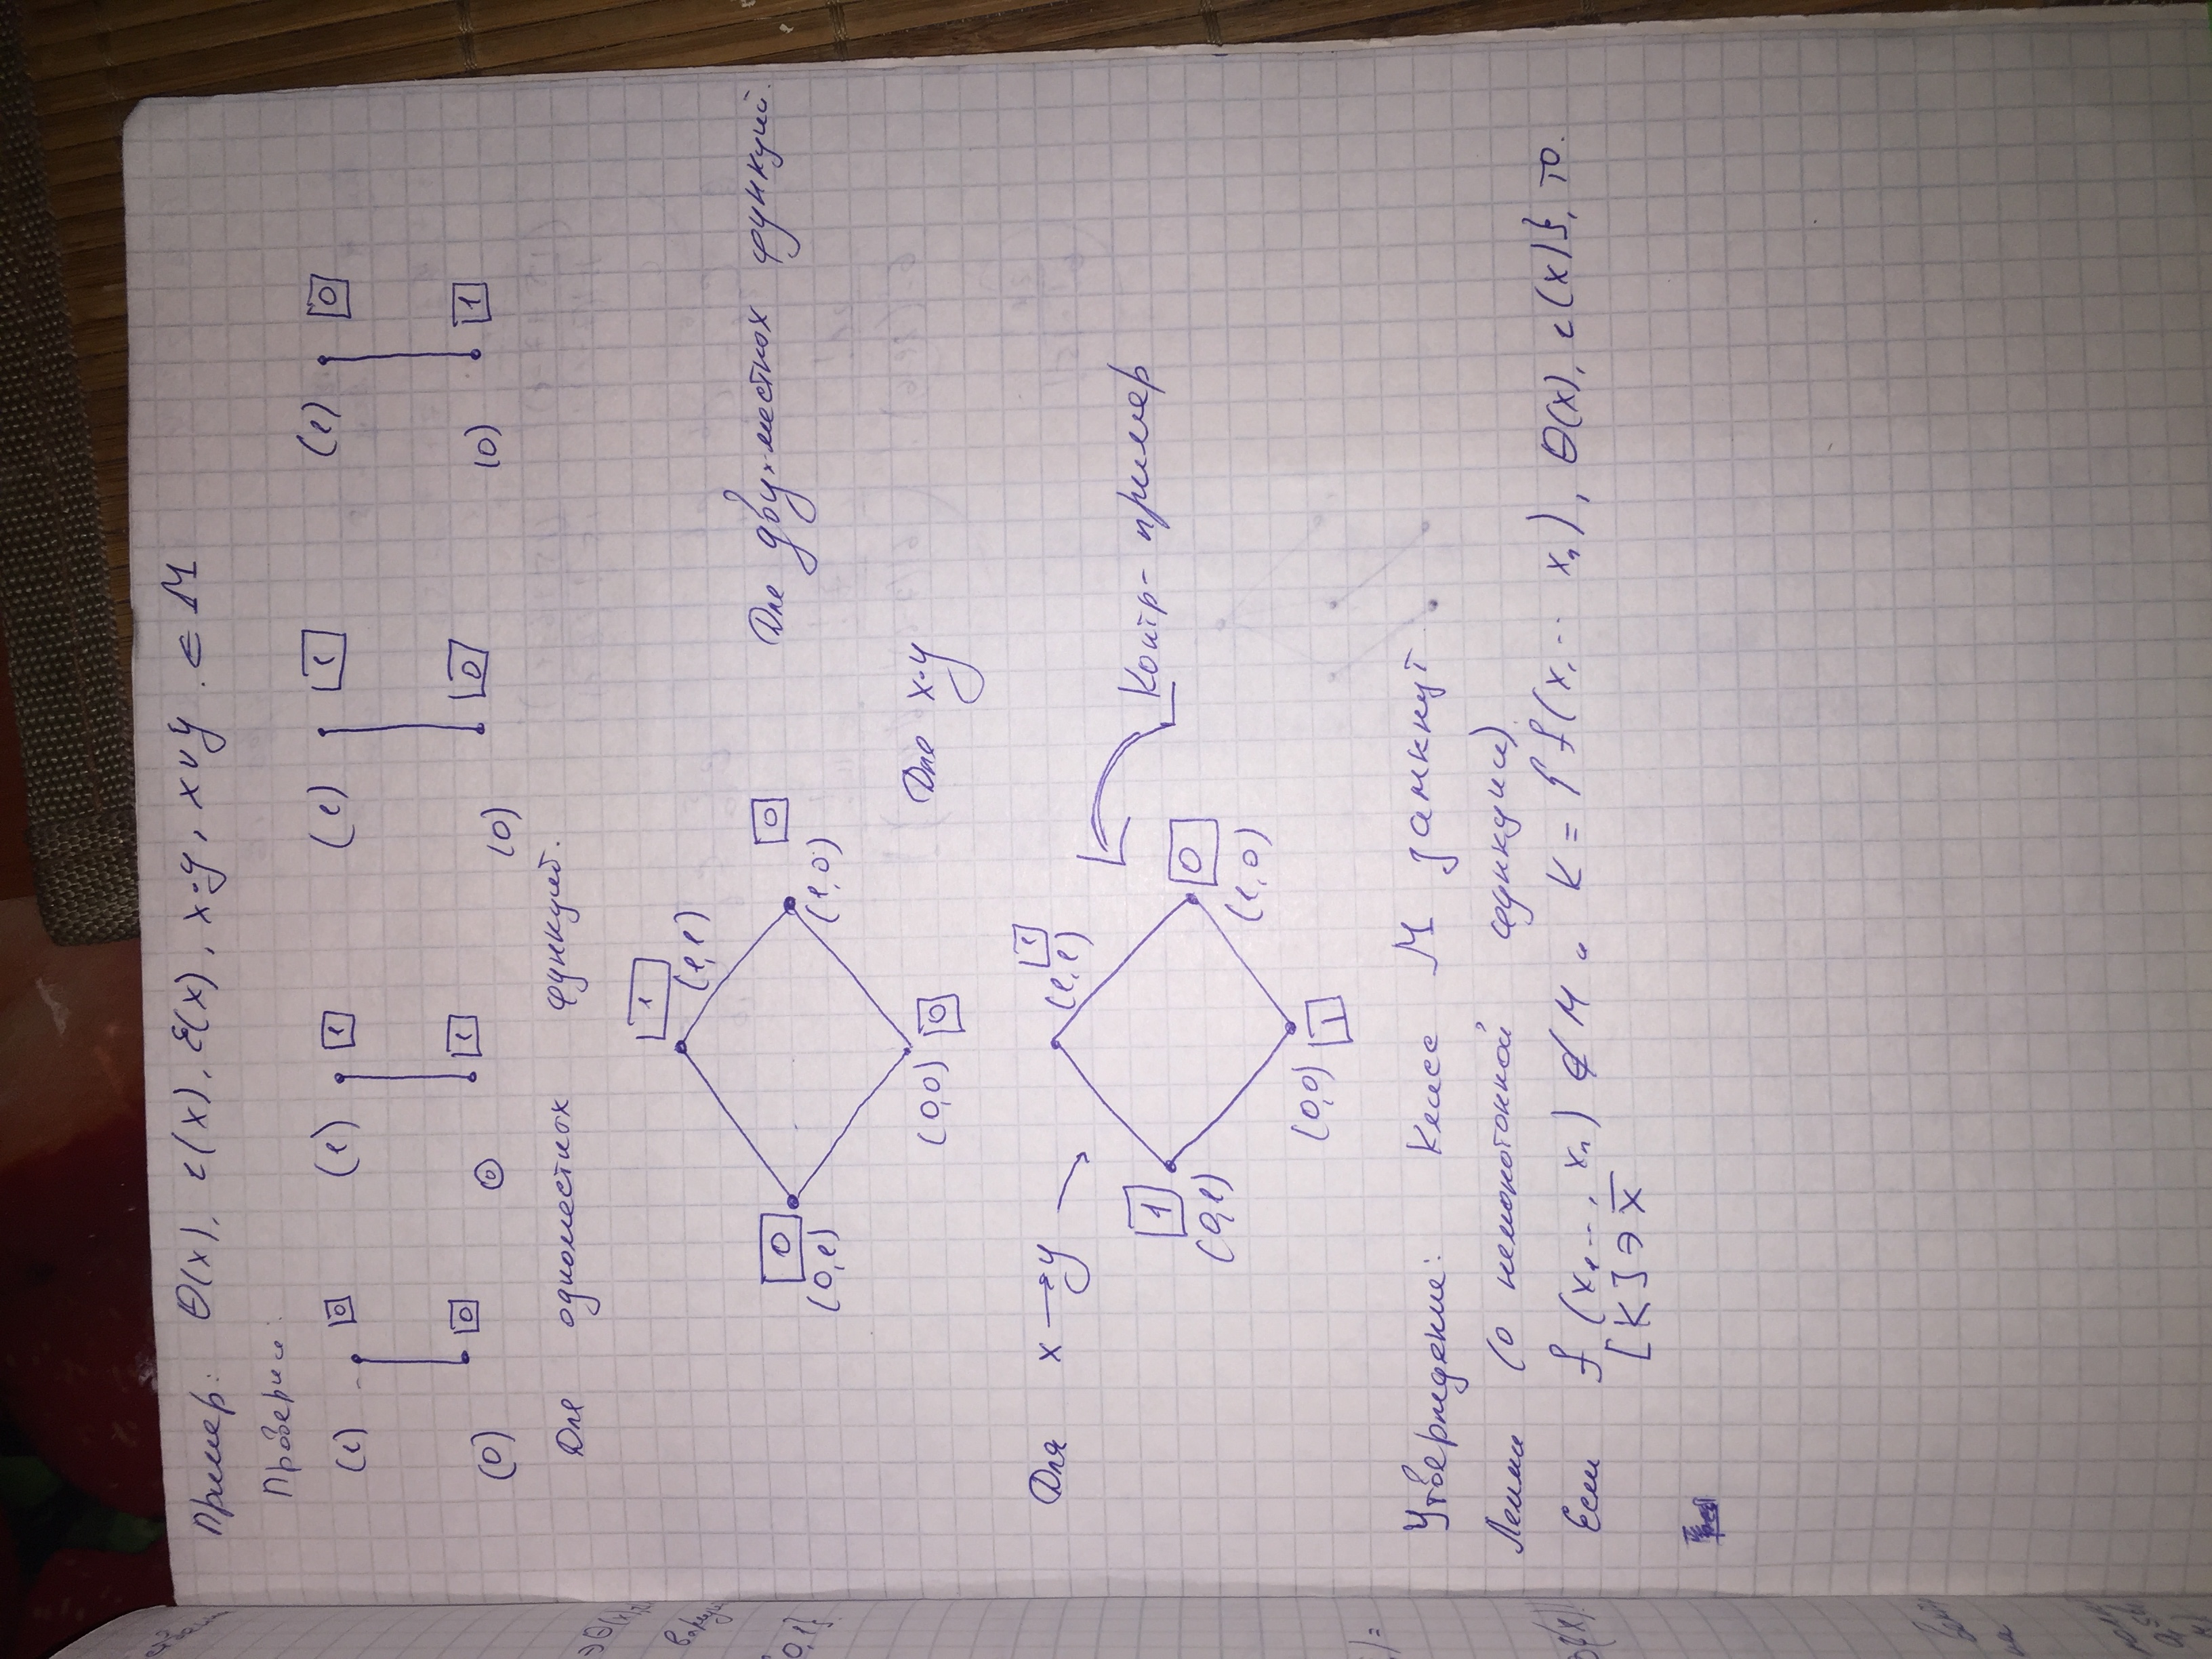 Пример: Θ(x), ι(x), ε(x), x·y, x∨y ∈ M
Проверим:
(1) 0 (1) 1 (1) 1 (1) 0
(0) 0 (0) 1 (0) 0 (0) 1
Для одноместных функций.
1
(1,1)
0 0 Для двухместных функций.
(0,1) (1,0)
(0,0) 0 Для x·y
Для x→y 1
(1,1)
1 0 Контр-пример
(0,1) (1,0)
(0,0) 1
Утверждение: Класс M замкнут
Лемма (о немонотонной функции)
Если f(x₁..., xₙ) ∉ M и K = {f(x,... xₙ), Θ(x), ι(x)}, то.
[K]∋x̅